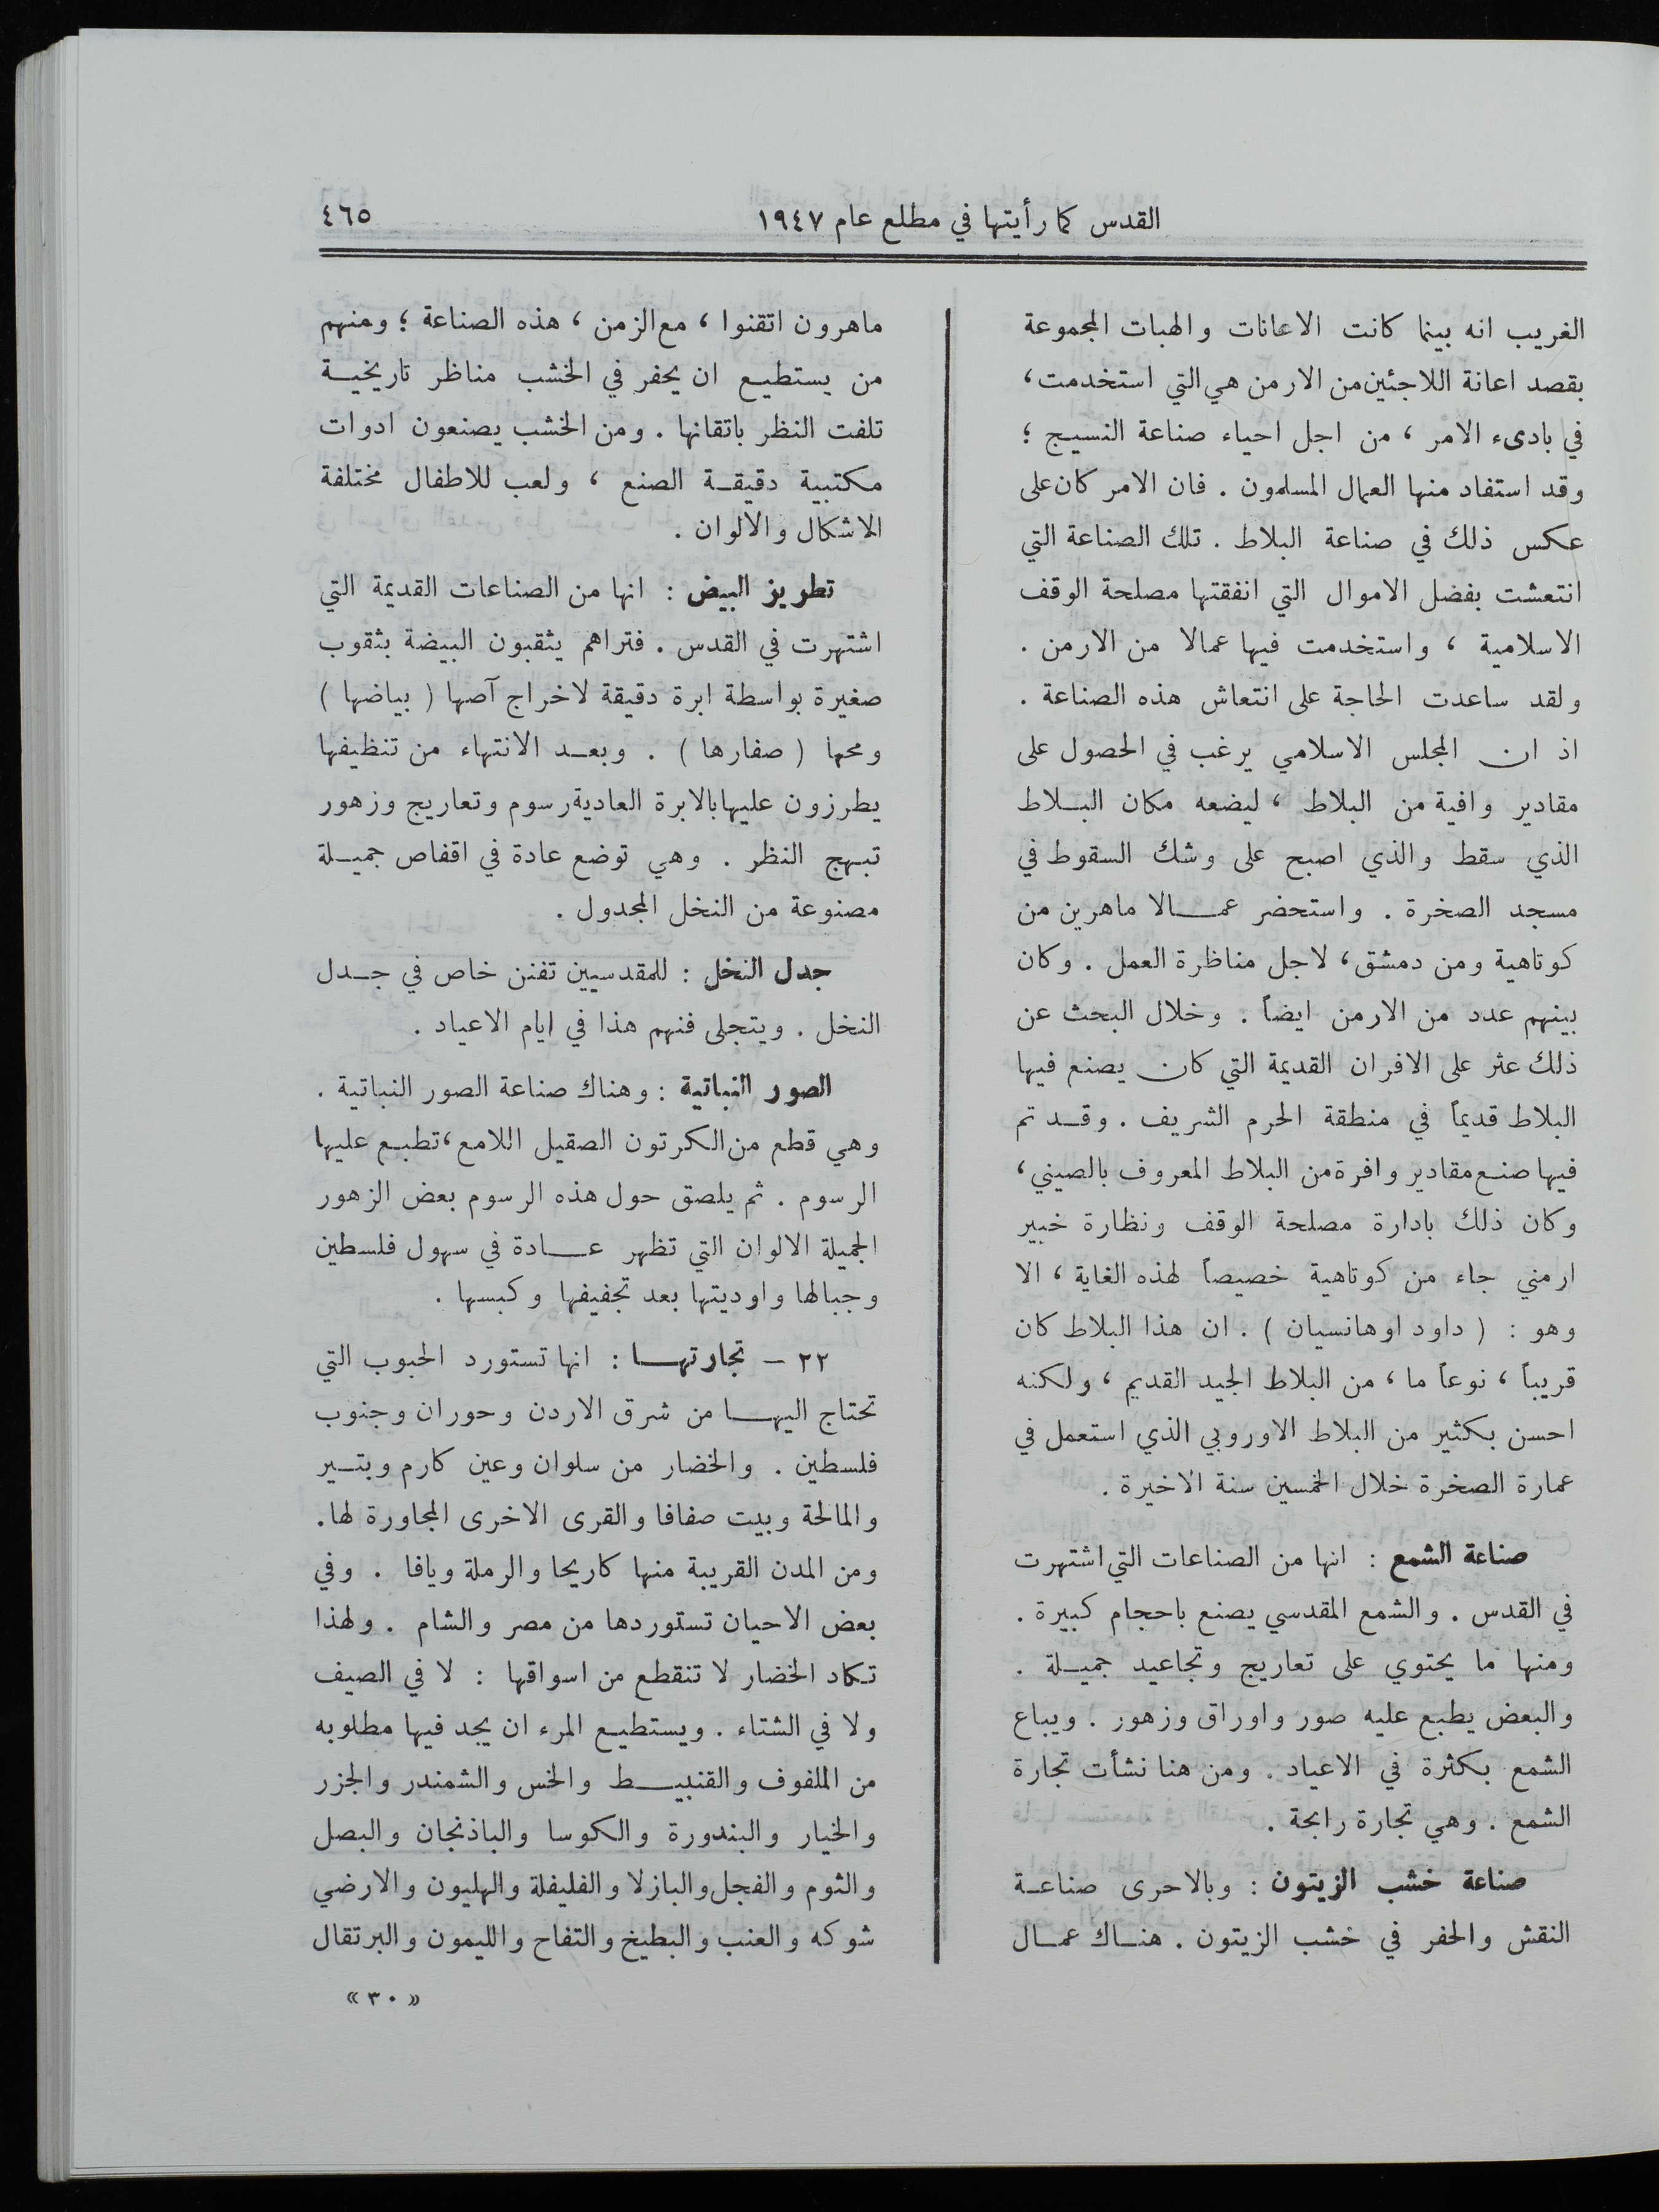 القدس كما رأيتها في مطلع عام ١٩٤٧
٤٦٥
الغريب انه بينما كانت الاعانات والهبات المجموعة
بقصد اعانة اللاجئين من الارمن هي التي استخدمت،
في بادىء الامر ، من اجل احياء صناعة النسيج ؛
وقد استفاد منها العمال المسلمون . فان الامر كان على
عكس ذلك في صناعة البلاط . تلك الصناعة التي
انتعشت بفضل الاموال التي انفقتها مصلحة الوقف
الاسلامية ، واستخدمت فيها عمالا من الارمن .
ولقد ساعدت الحاجة على انتعاش هذه الصناعة .
اذ ان المجلس الاسلامي يرغب في الحصول على
مقادير وافية من البلاط ، ليضعه مكان البلاط
الذي سقط والذي اصبح على وشك السقوط في
مسجد الصخرة . واستحضر عمالا ماهرين من
كوتاهية ومن دمشق، لاجل مناظرة العمل . وكان
بينهم عدد من الارمن ايضاً . وخلال البحث عن
ذلك عثر على الافران القديمة التي كان يصنع فيها
البلاط قديماً في منطقة الحرم الشريف . وقد تم
فيها صنع مقادير وافرة من البلاط المعروف بالصيني،
وكان ذلك بادارة مصلحة الوقف ونظارة خبير
ارمني جاء من كوتاهية خصيصاً لهذه الغاية ، الا
وهو : ( داود اوهانسيان ) . ان هذا البلاط كان
قريباً ، نوعاً ما ، من البلاط الجيد القديم ، ولكنه
احسن بكثير من البلاط الاوروبي الذي استعمل في
عمارة الصخرة خلال الخمسين سنة الاخيرة .
صناعة الشمع : انها من الصناعات التي اشتهرت
في القدس . والشمع المقدسي يصنع باحجام كبيرة .
ومنها ما يحتوي على تعاريج وتجاعيد جميلة .
والبعض يطبع عليه صور واوراق وزهور . ويباع
الشمع بكثرة في الاعياد . ومن هنا نشأت تجارة
الشمع . وهي تجارة رابحة .
صناعة خشب الزيتون : وبالاحرى صناعة
النقش والحفر في خشب الزيتون . هناك عمال
ماهرون اتقنوا ، مع الزمن ، هذه الصناعة ؛ ومنهم
من يستطيع ان يحفر في الخشب مناظر تاريخية
تلفت النظر باتقانها . ومن الخشب يصنعون ادوات
مكتبية دقيقة الصنع ، ولعب للاطفال مختلفة
الاشكال والالوان .
تطريز البيض : انها من الصناعات القديمة التي
اشتهرت في القدس . فتراهم يثقبون البيضة بثقوب
صغيرة بواسطة ابرة دقيقة لاخراج آصها ( بياضها )
ومحها ( صفارها ) . وبعد الانتهاء من تنظيفها
يطرزون عليها بالابرة العادية رسوم وتعاريج وزهور
تبهج النظر . وهي توضع عادة في اقفاص جميلة
مصنوعة من النخل المجدول .
جدل النخل : للمقدسيين تفنن خاص في جدل
النخل . ويتجلى فنهم هذا في ايام الاعياد .
الصور النباتية : وهناك صناعة الصور النباتية .
وهي قطع من الكرتون الصقيل اللامع، تطبع عليها
الرسوم . ثم يلصق حول هذه الرسوم بعض الزهور
الجميلة الالوان التي تظهر عادة في سهول فلسطين
وجبالها واوديتها بعد تجفيفها وكبسها .
٢٢ – تجارتها : انها تستورد الحبوب التي
تحتاج اليها من شرق الاردن وحوران وجنوب
فلسطين . والخضار من سلوان وعين كارم وبتير
والمالحة وبيت صفافا والقرى الاخرى المجاورة لها.
ومن المدن القريبة منها كاريحا والرملة ويافا . وفي
بعض الاحيان تستوردها من مصر والشام . ولهذا
تكاد الخضار لا تنقطع من اسواقها : لا في الصيف
ولا في الشتاء . ويستطيع المرء ان يجد فيها مطلوبه
من الملفوف والقنبيط والخس والشمندر والجزر
والخيار والبندورة والكوسا والباذنجان والبصل
والثوم والفجل والبازلا والفليفلة والهليون والارضي
شوكه والعنب والبطيخ والتفاح والليمون والبرتقال
« ٣٠ »